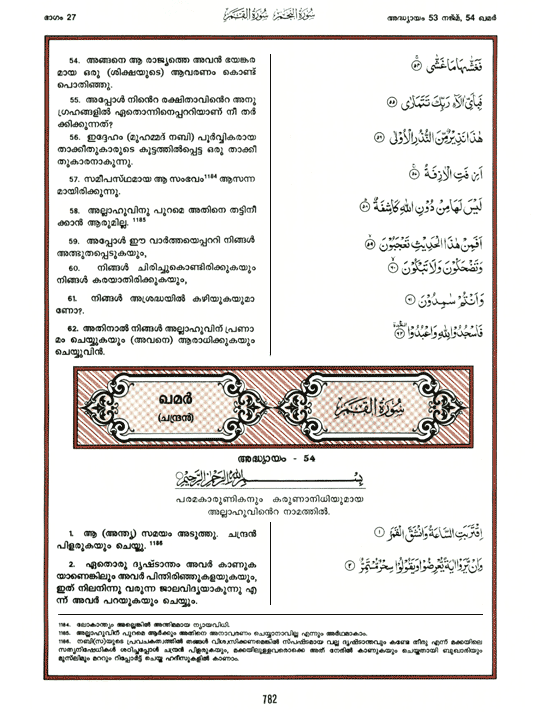 ഭാഗം 27
سُورَةُ النَّجْمِ سُورَةُ القَمَر
അദ്ധ്യായം 53 നജ്മ്, 54 ഖമർ
54. അങ്ങനെ ആ രാജ്യത്തെ അവൻ ഭയങ്കര
മായ ഒരു (ശിക്ഷയുടെ) ആവരണം കൊണ്ട്
പൊതിഞ്ഞു.
فَغَشَّىٰهَا مَا غَشَّىٰ ٥٤
55. അപ്പോൾ നിന്റെ രക്ഷിതാവിന്റെ അനു
ഗ്രഹങ്ങളിൽ ഏതൊന്നിനെപ്പററിയാണ് നീ തർ
ക്കിക്കുന്നത്?
فَبِأَيِّ ءَالَآءِ رَبِّكَ تَتَمَارَىٰ ٥٥
56. ഇദ്ദേഹം (മുഹമ്മദ് നബി) പൂർവ്വികരായ
താക്കീതുകാരുടെ കൂട്ടത്തിൽപ്പെട്ട ഒരു താക്കീ
തുകാരനാകുന്നു.
هَٰذَا نَذِيرٌ مِّنَ النُّذُرِ الْأُولَىٰ ٥٦
57. സമീപസ്ഥമായ ആ സംഭവം 1184 ആസന്ന
മായിരിക്കുന്നു.
أَزِفَتِ الْآزِفَةُ ٥٧
58. അല്ലാഹുവിനു പുറമെ അതിനെ തട്ടിനീ
ക്കാൻ ആരുമില്ല. 1185
لَيْسَ لَهَا مِن دُونِ اللَّهِ كَاشِفَةٌ ٥٨
59. അപ്പോൾ ഈ വാർത്തയെപ്പററി നിങ്ങൾ
അത്ഭുതപ്പെടുകയും,
أَفَمِنْ هَٰذَا الْحَدِيثِ تَعْجَبُونَ ٥٩
60. നിങ്ങൾ ചിരിച്ചുകൊണ്ടിരിക്കുകയും
നിങ്ങൾ കരയാതിരിക്കുകയും,
وَتَضْحَكُونَ وَلَا تَبْكُونَ ٦٠
61. നിങ്ങൾ അശ്രദ്ധയിൽ കഴിയുകയുമാ
ണോ?.
وَأَنتُمْ سَامِدُونَ ٦١
62. അതിനാൽ നിങ്ങൾ അല്ലാഹുവിന് പ്രണാ
മം ചെയ്യുകയും (അവനെ) ആരാധിക്കുകയും
ചെയ്യുവിൻ.
فَاسْجُدُوا لِلَّهِ وَاعْبُدُوا ٦٢
ഖമർ
(ചന്ദ്രൻ)
سُورَةُ القَمَر
അദ്ധ്യായം - 54
بِسْمِ اللَّهِ الرَّحْمَٰنِ الرَّحِيمِ
പരമകാരുണികനും കരുണാനിധിയുമായ
അല്ലാഹുവിന്റെ നാമത്തിൽ.
1. ആ (അന്ത്യ) സമയം അടുത്തു. ചന്ദ്രൻ
പിളരുകയും ചെയ്തു. 1186
اقْتَرَبَتِ السَّاعَةُ وَانشَقَّ الْقَمَرُ ١
2. ഏതൊരു ദൃഷ്ടാന്തം അവർ കാണുക
യാണെങ്കിലും അവർ പിന്തിരിഞ്ഞുകളയുകയും,
ഇത് നിലനിന്നു വരുന്ന ജാലവിദ്യയാകുന്നു എ
ന്ന് അവർ പറയുകയും ചെയ്യും.
وَإِن يَرَوْا آيَةً يُعْرِضُوا وَيَقُولُوا سِحْرٌ مُّسْتَمِرٌّ ٢
1184. ലോകാന്ത്യം അല്ലെങ്കിൽ അന്തിമമായ ന്യായവിധി.
1185. അല്ലാഹുവിന് പുറമെ ആർക്കും അതിനെ അനാവരണം ചെയ്യാനാവില്ല എന്നും അർഥമാകാം.
1186. നബി(സ)യുടെ പ്രവാചകത്വത്തിൽ തങ്ങൾ വിശ്വസിക്കണമെങ്കിൽ സ്പഷ്ടമായ വല്ല ദൃഷ്ടാന്തവും കണ്ടേ തീരു എന്ന് മക്കയിലെ
സത്യനിഷേധികൾ ശഠിച്ചപ്പോൾ ചന്ദ്രൻ പിളരുകയും, മക്കയിലുള്ളവരൊക്കെ അത് നേരിൽ കാണുകയും ചെയ്തതായി ബുഖാരിയും
മുസ്ലിമും മററും റിപ്പോർട്ട് ചെയ്ത ഹദീസുകളിൽ കാണാം.
782